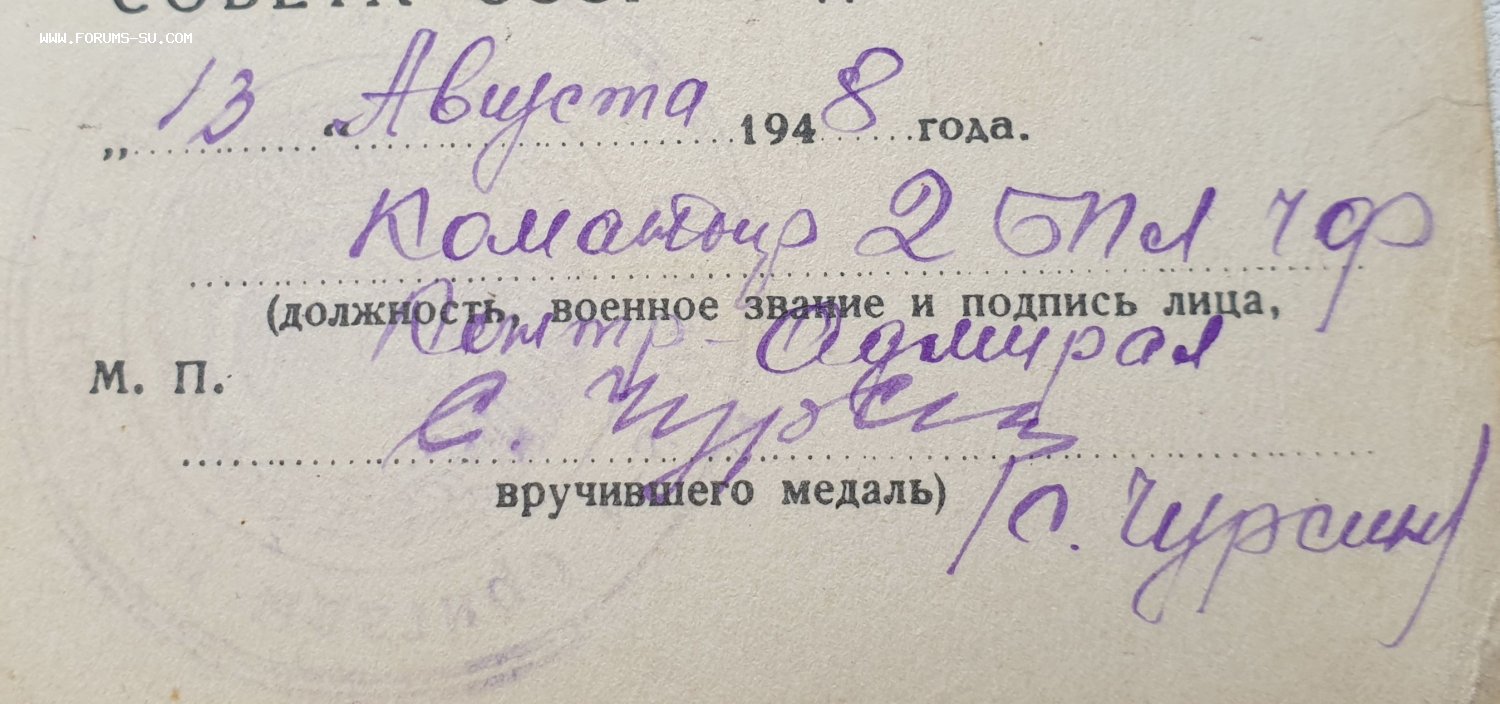 WWW.FORUMS-SU.COM
„ 13 “ Августа 1948 года.
Командир 2 БПЛ ЧФ
(должность, военное звание и подпись лица,
Контр-Адмирал
М. П.
С. Чурсин
вручившего медаль)
(С. Чурсин)